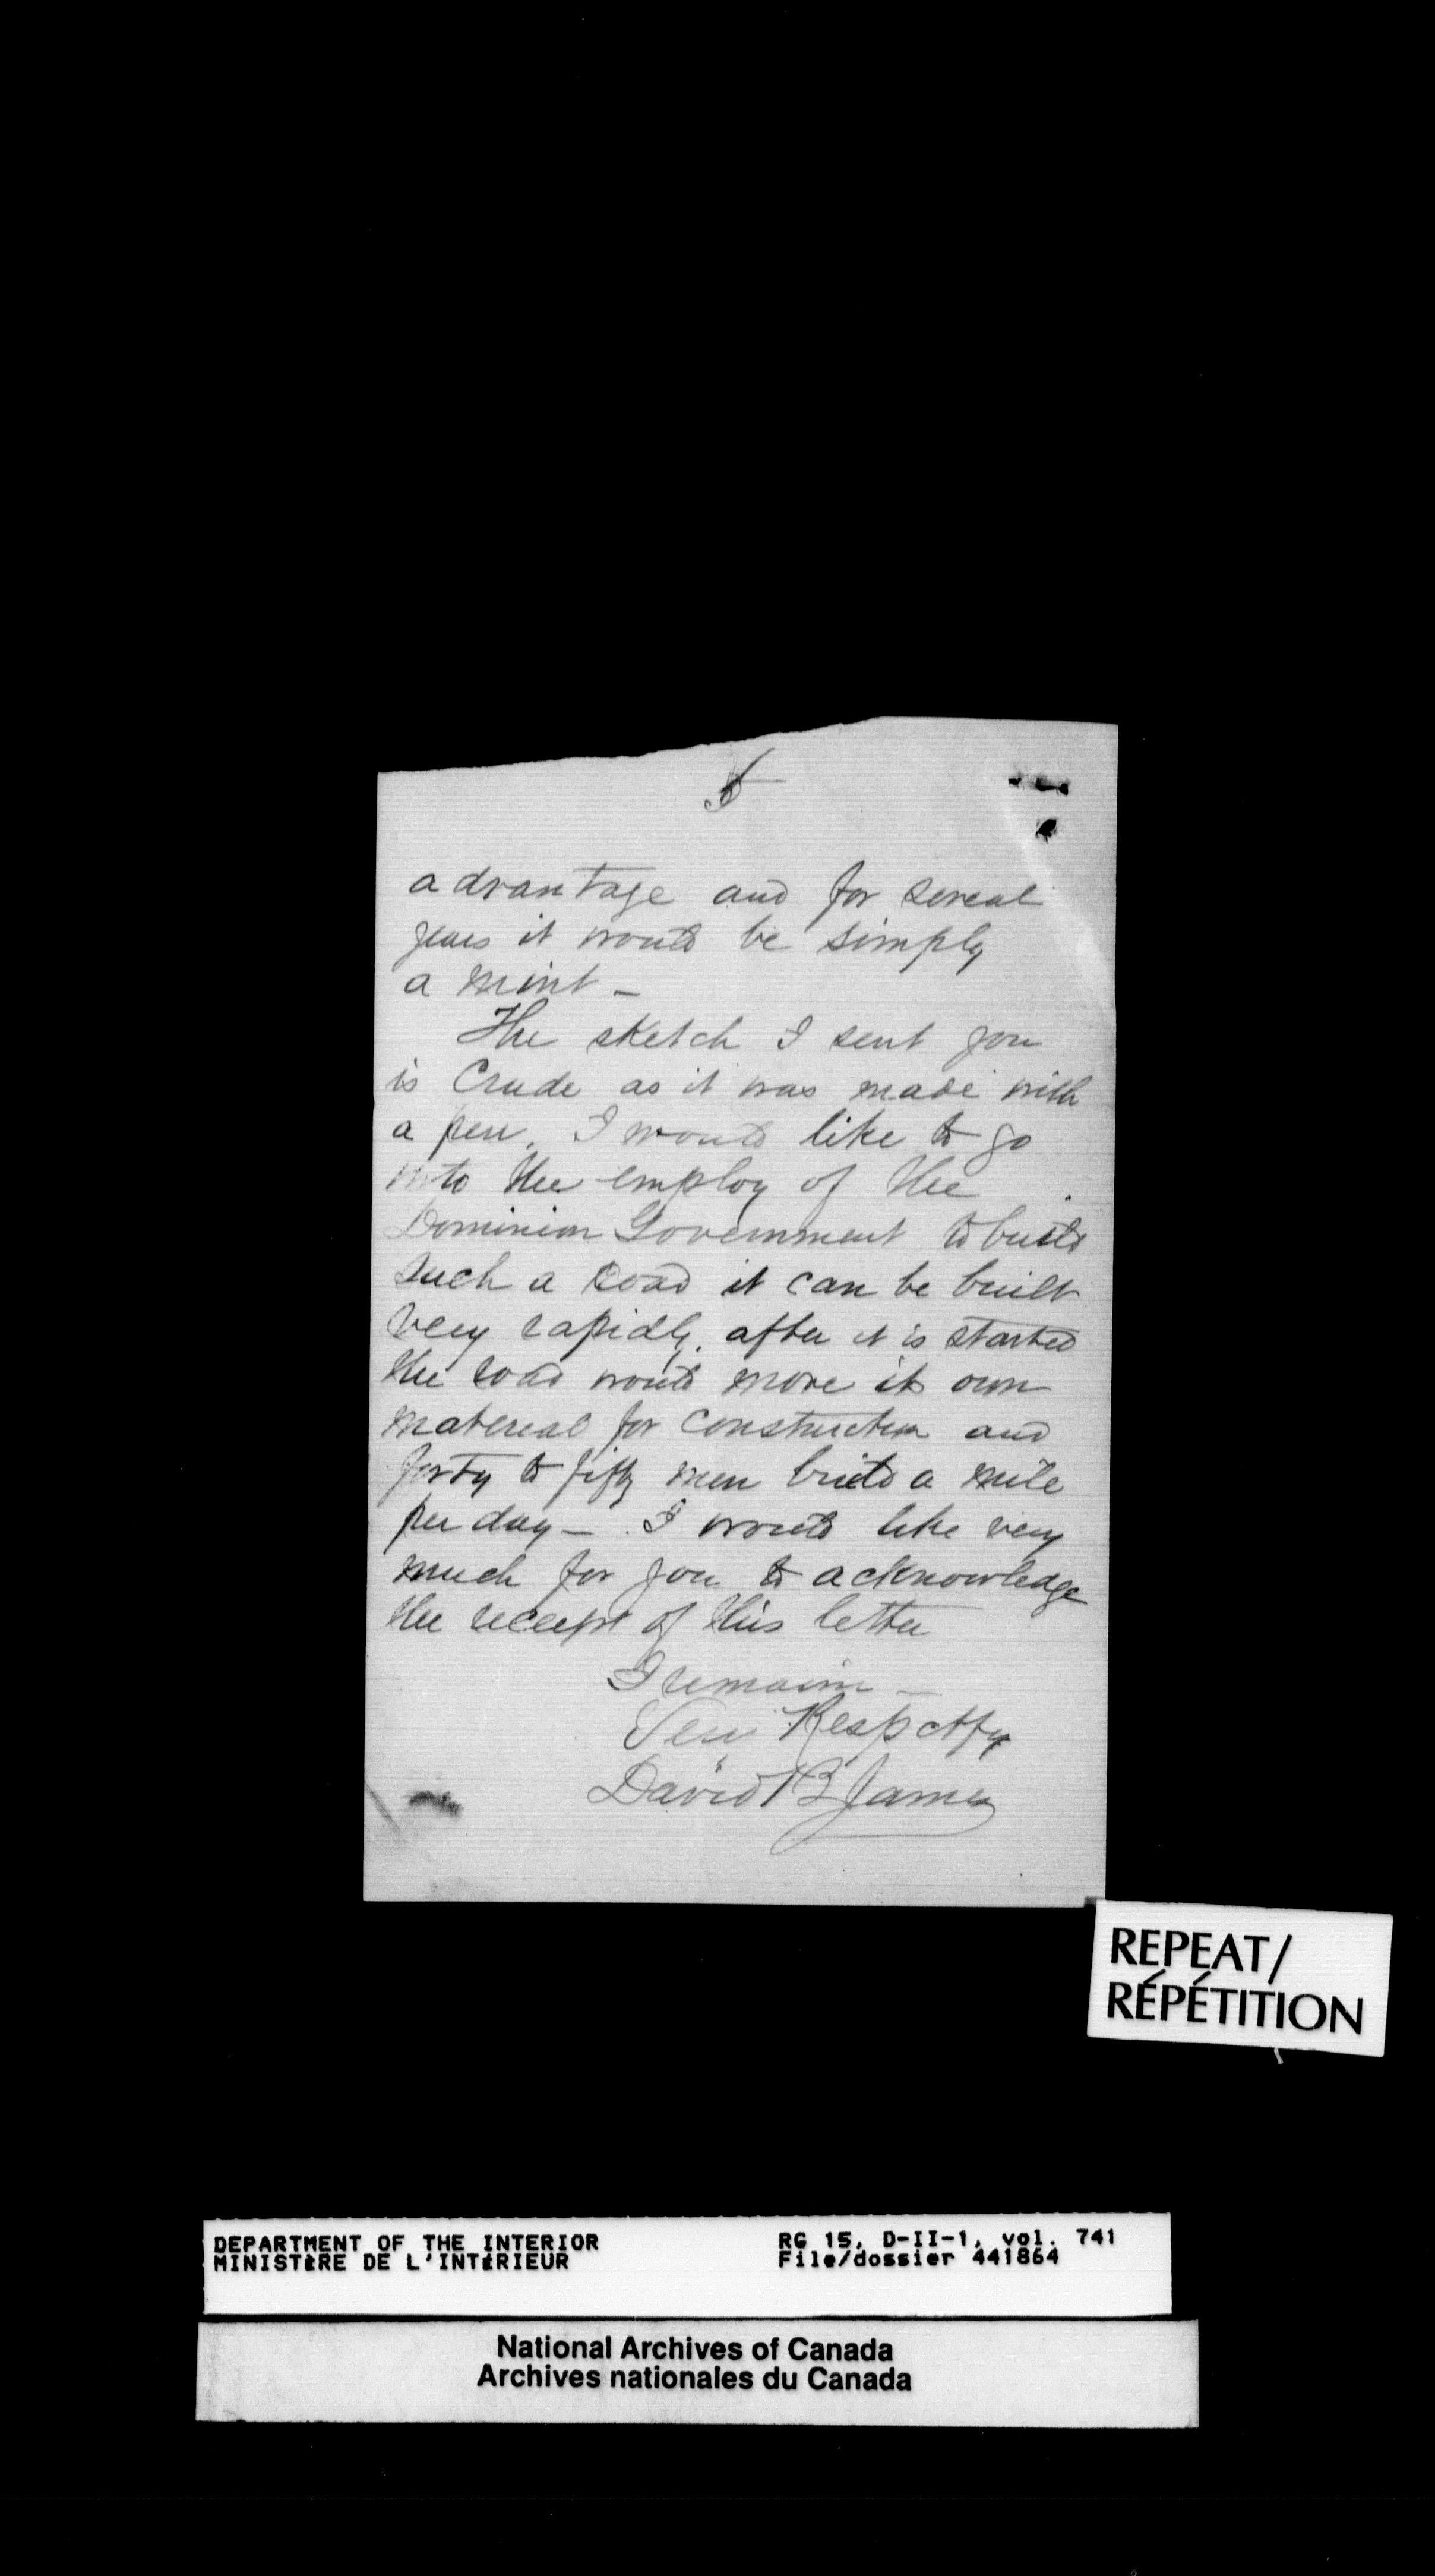 5
advantage and for sereal
years it would be simply
a mint -
The sketch I sent you
is Crude as it was made with
a pen. I would like to go
into the employ of the
Dominion Government to build
such a road it can be built
very rapidly. after it is started
the road would move its own
matereal for construction and
forty to fifty men build a mile
per day - I would like very
much for you to acknowledge
the receept of this letter
I remain -
Very Respctfy
David B James
REPEAT/
RÉPÉTITION
DEPARTMENT OF THE INTERIOR RG 15, D-II-1, vol. 741
MINISTÈRE DE L'INTÉRIEUR File/dossier 441864
National Archives of Canada
Archives nationales du Canada